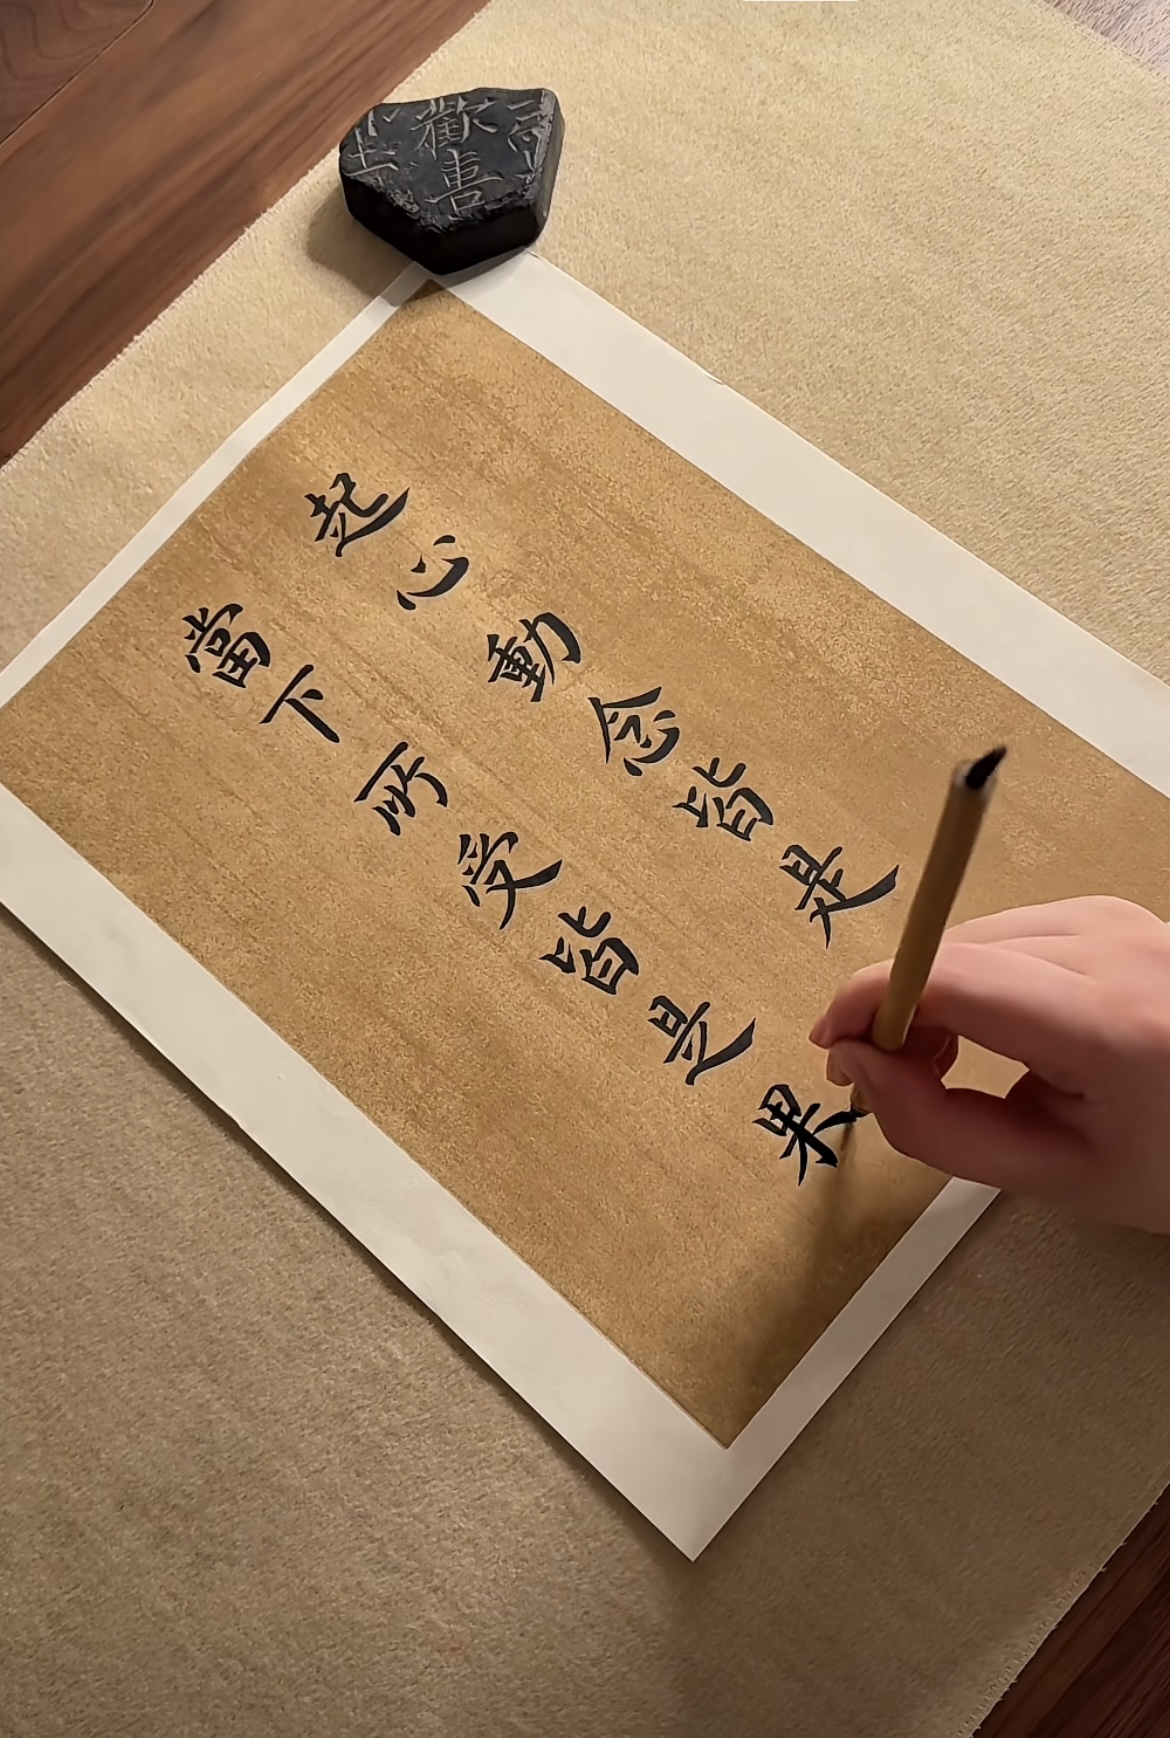 起心動念皆是
當下所受皆是果
歡喜